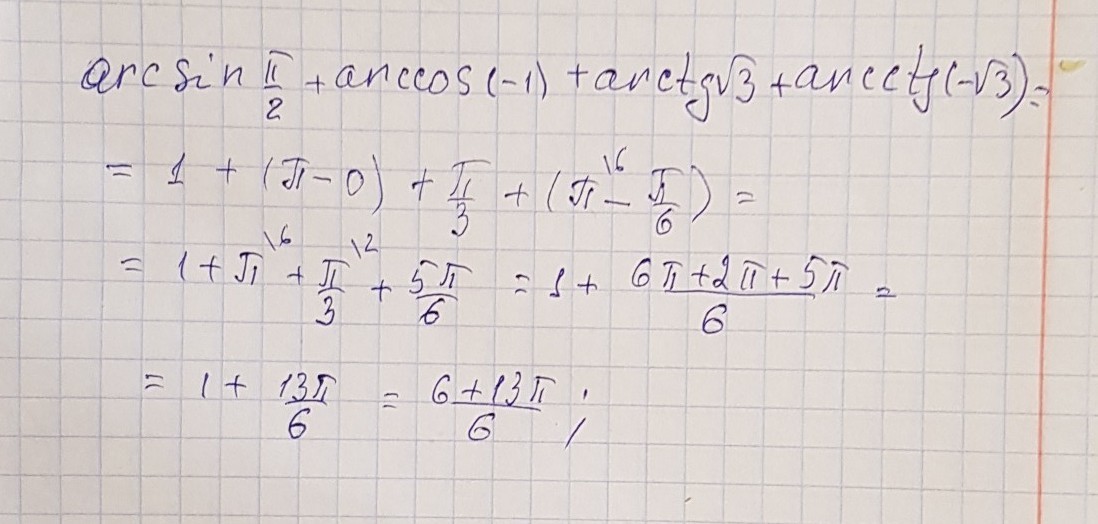 arcsin π/2 + arccos(-1) + arctg√3 + arcctg(-√3) =
= 1 + (π - 0) + π/3 + (π\6 - π/6) =
= 1 + π\6 + π/3\2 + 5π/6 = 1 + (6π + 2π + 5π)/6 =
= 1 + 13π/6 = (6 + 13π)/6 ;